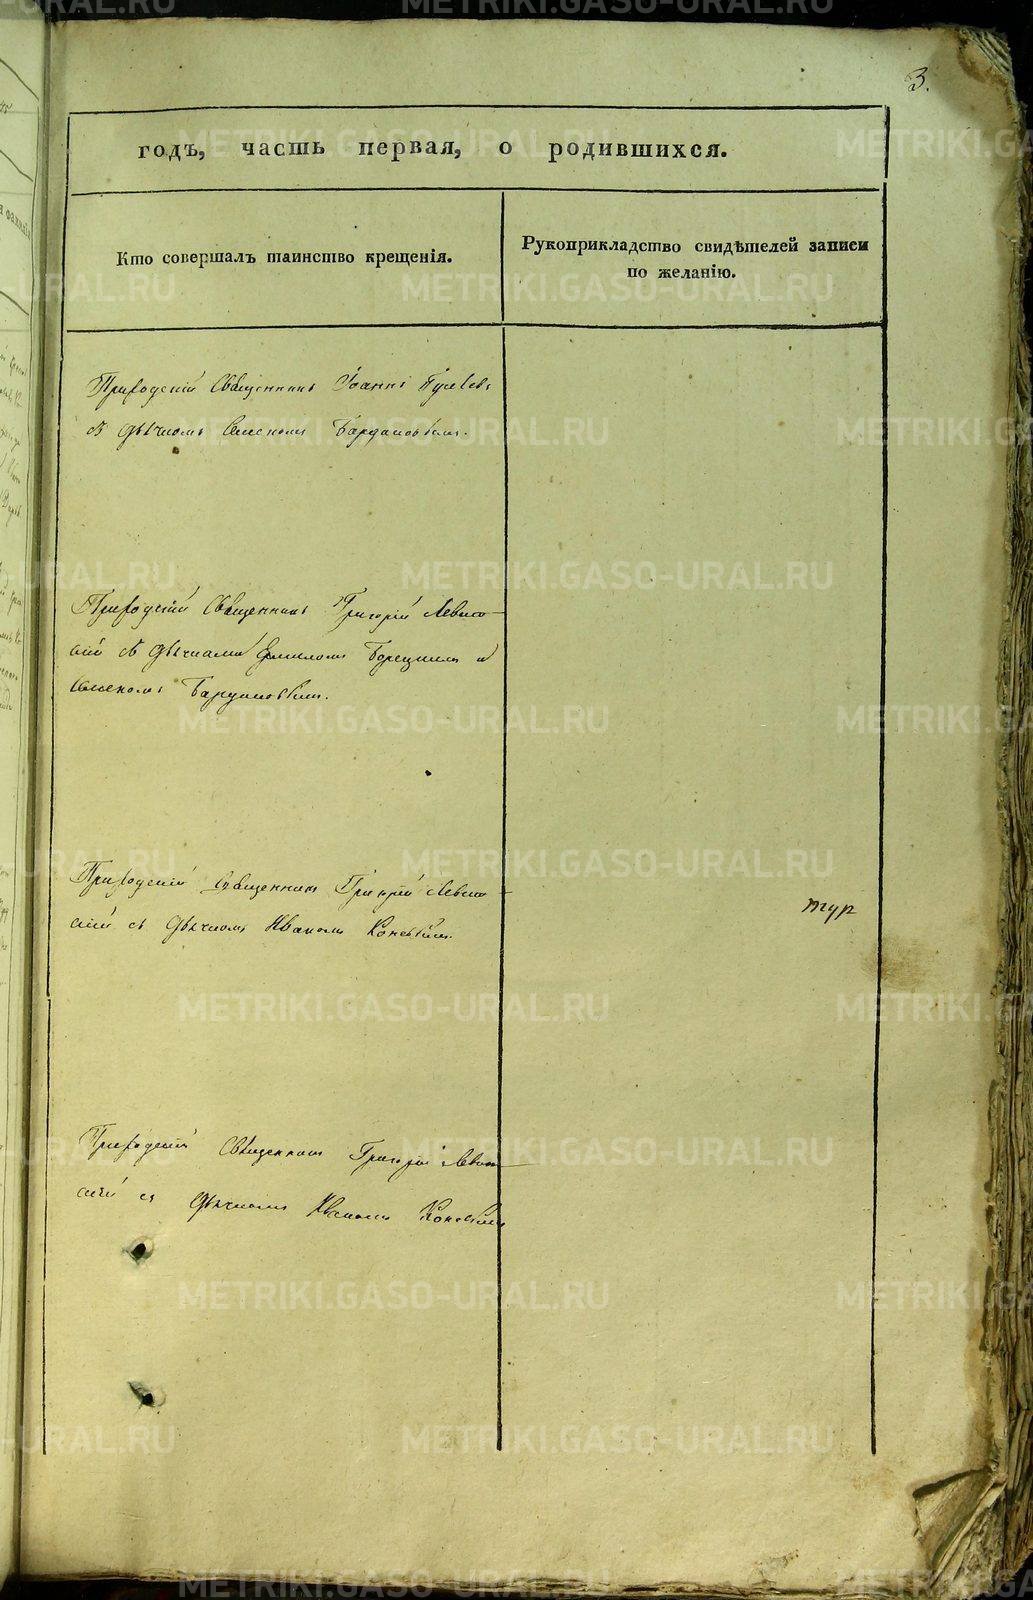 3.
годъ, часть первая, о родившихся.
Кто совершалъ таинство крещенія.
Рукоприкладство свидѣтелей записи
по желанію.
Приходскій Священникъ Іоаннъ
съ дьячкомъ Семеномъ
Приходскій Священникъ Григорій Левит-
скій съ дьячками и
Семеномъ
Приходскій Священникъ Григорій Левит-
скій съ дьячкомъ Иваномъ Коневымъ.
Приходскій Священникъ Григорій Левит-
скій съ дьячкомъ Иваномъ Коневымъ
METRIKI.GASO-URAL.RU